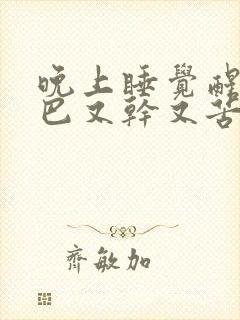 晚上睡覺醒
巴又幹又苦
齊敏加